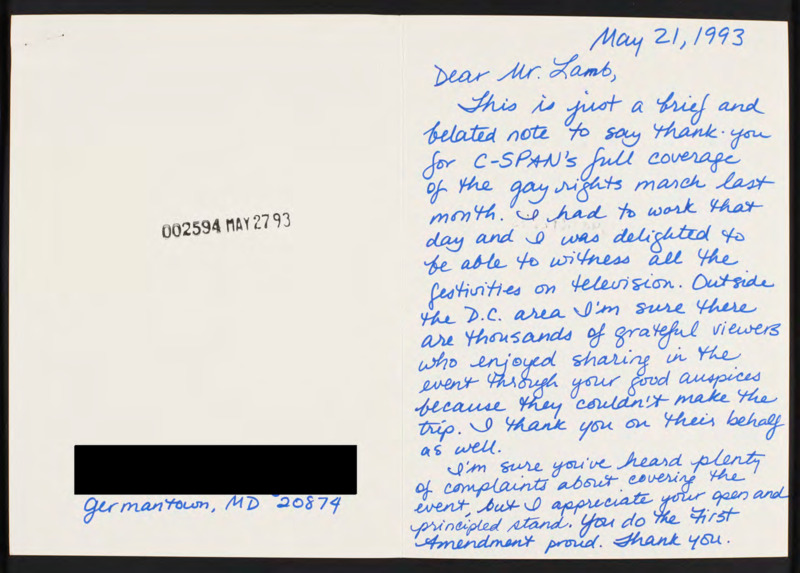 002594 MAY 27 93
Germantown, MD 20874
May 21, 1993
Dear Mr. Lamb,
This is just a brief and
belated note to say thank-you
for C-SPAN's full coverage
of the gay rights march last
month. I had to work that
day and I was delighted to
be able to witness all the
festivities on television. Outside
the D.C. area I'm sure there
are thousands of grateful viewers
who enjoyed sharing in the
event through your good auspices
because they couldn't make the
trip. I thank you on their behalf
as well.
I'm sure you've heard plenty
of complaints about covering the
event, but I appreciate your open and
principled stand. You do the First
Amendment proud. Thank you.